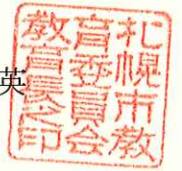 英
札幌市教
育委員会
教育長之印